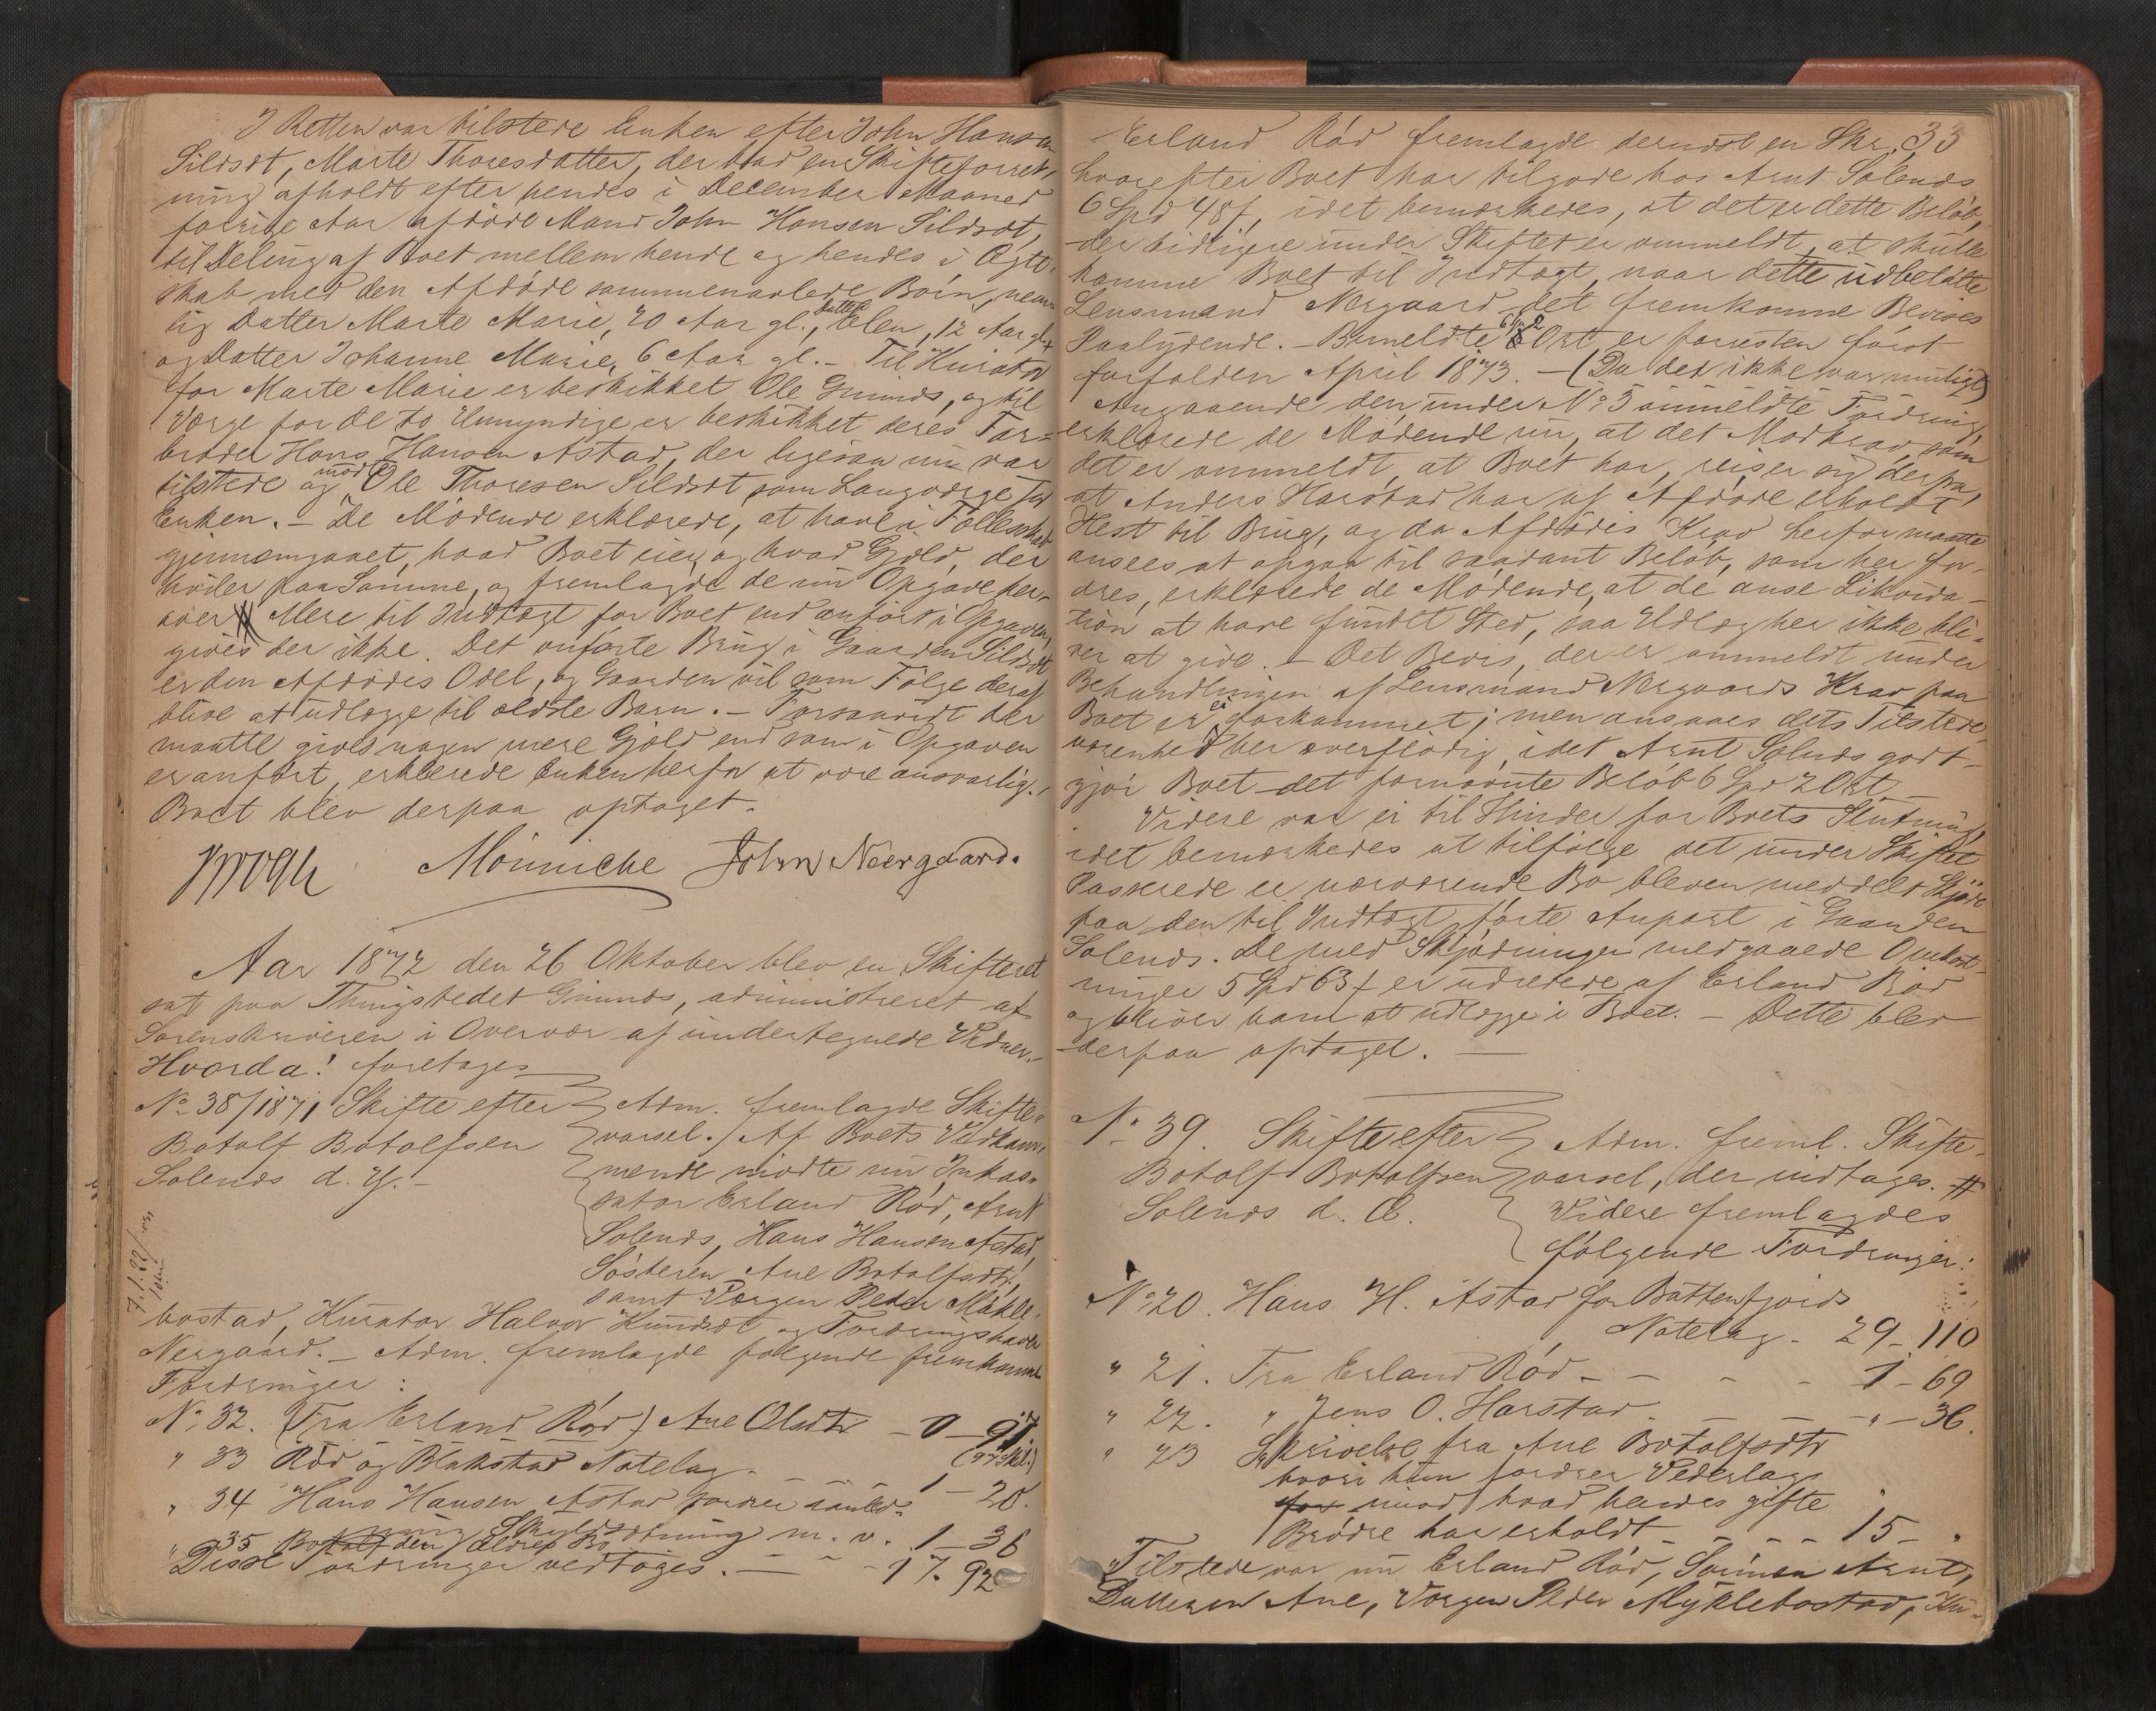 I Retten var tilstede Enken efter John Hansen
Sildset, Marte Thoresdatter, der bad en Skifteforret-
ning afholdt efter hendes i December Maaned
forrige Aar afdøde Mand John Hansen Sildset,
til Deling af Boet mellem hende og hendes i Ægte-
skab med den Afdøde sammenavlede Børn, nem-
lig Datter Marte Marie, 20 Aar gl., Datter Elen, 12 Aar gl.
og Datter Johanne Marie, 6 Aar gl. - Til Kurator
for Marte Marie er beskikket Ole Gimnds, og til
Værge for de to Umyndige er beskikket deres Far-
broder Hans Hansen Astad, der ligesaa nu var
tilstede og mødte Ole Thoresen Sildset som Laugværge for
Enken. - De Mødende erklærede, at have i Fællesskab
gjennemgaaet, hvad Boet eier og hvad Gjæld, der
hviler paa Samme, og fremlagde de nu Opgave her-
over Mere til Indtægt for Boet end anført i Opgaven,
gives der ikke. Det anførte Brug i Gaarden Sildset
er den Afdødes Odel, og Gaarden vil som Følge deraf
blive at udlægge til ældste Barn. - Forsaavidt der
maatte gives nogen mere Gjæld end som i Opgaven
er anført, erklærede Enken herfor at være ansvarlig.
Boet blev derpaa optaget.
Krogh Mönniche John Neergaard.
Aar 1872 den 26 Oktober blev en Skifteret
sat paa Thingstedet Gimnds, administreret af
Sorenskriveren i Overvær af undertegnede Vidner.-
Hvorda! foretoges
No 38/1871 Skifte efter
Botolf Botolfsen
Solends d. Y. -
Adm. fremlagde Skifte-
varsel. / Af Boets Vedkom-
mende mødte nu Inkas-
sator Erland Rød, Arnt
Solends, Hans Hansen Astad,
Søsteren Ane Botolfsdtr,
samt Værgen Peder Mükle-
bostad, Kurator Halvor Kundsdt og Fordringshaver
Nergaard. - Adm. fremlagde følgende fremkomne
Fordringer:
No 32. (Fra Erland Rød) Ane Olsdtr - 0 - 97.
(97 skil.)
" 33 Rød og Blakstad Notelag - 1 - 20.
" 34 Hans Hansen Astad fordrer
Skyldsætning m. v. 1 - 36
" 35 Botolf den Ældres Bo - - 17. 92
Disse Fordringer vedtoges. -
33
Erland Rød fremlagde dernæst en Skr.
hvorefter Boet har tilgode hos Arnt Solends
6 Spd 48 f, idet bemærkedes, at det er dette Beløb,
der tidligere under Skiftet er ommeldt, at skulle
komme Boet til Indtægt, naar dette udbetalte
Lensmand Nergaard det fremkomne Bevises
Paalydende. - Bemeldte 6 Spd 2 Ort er forresten først
forfalden April 1873. - (Da det ikke var muligt)
Angaaende den under No 3 anmeldte Fordring,
erklærede de Mødende nu, at det Modkrav, som
det er ommeldt, at Boet har, reiser sig derpaa,
at Anders Harstad har af Afdøde erholdt
Hest til Brug, og da Afdødes Krav herfor maatte
ansees at opgaa til saadant Beløb, som her for-
dres, erklærede de Mødende, at de anse Likvida-
tion at have fundet Sted, saa Udlæg her ikke bli-
ver at give. - Det Bevis, der er ommeldt under
Behandlingen af Lensmand Nergaards Krav paa
Boet er ei forkommet; men ansaaes dets Tilstede-
værenhed her overflødig, idet Arnt Solends godt-
gjør Boet det fornævnte Beløb 6 Spd 2 Ort. -
Videre var ei til Hinder for Boets Slutning,
idet bemærkedes at tilfølge det under Skiftet
Passerede er nærværende Bo bleven meddelt Skjøde
paa den til Indtægt førte Anpart i Gaarden
Solends. De med Skjødningen medgaaede Omkost-
ninger 5 Spd 63 f er udredede af Erland Rød
og bliver ham at udlægge i Boet. - Dette blev
derpaa optaget. -
No 39. Skifte efter
Botolf Botolfsen
Solends d. Æ.
Adm. freml. Skifte-
varsel, der indtages. #
Videre fremlagdes
følgende Fordringer:
No 20. Hans H. Astad for Battenfjords
Notelag - 29 - 110
" 21. Fra Erland Rød - - - - 1 - 69
" 22. " Jens O. Harstad - - - " - 36.
" 23 Skrivelse fra Ane Botolfsdtr
hvori hun fordrer Vederlag
for mod hvad hendes gifte
Brødre har erholdt - - - 15 - "
Tilstede var nu Erland Rød, Sønnen Arnt,
Datteren Ane, Værgen Peder Myklebostad, Ku-